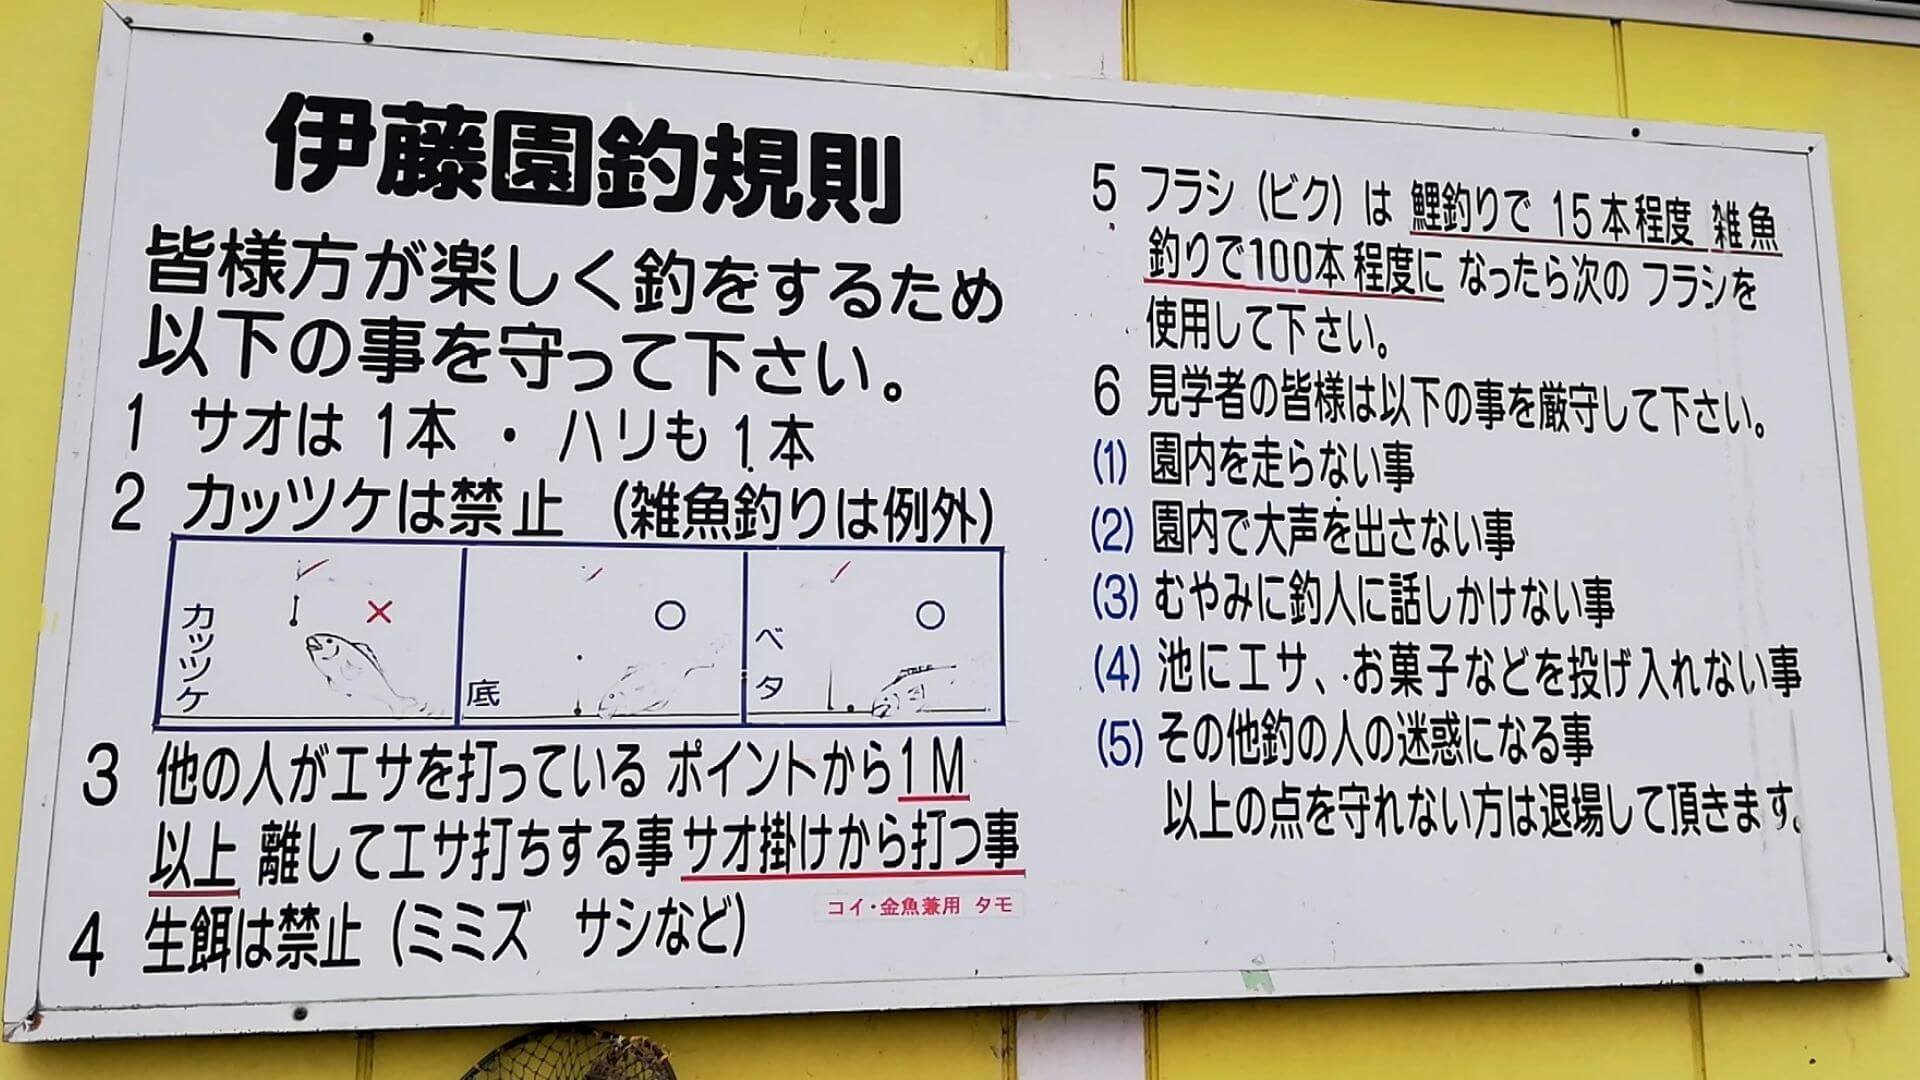 伊藤園釣規則
皆様方が楽しく釣をするため
以下の事を守って下さい。
1 サオは 1本 ・ ハリも 1本
2 カッツケは禁止 (雑魚釣りは例外)
カッツケ ×
底 ○
ベタ ○
3 他の人がエサを打っている ポイントから1M
以上 離してエサ打ちする事 サオ掛けから打つ事
コイ・金魚兼用 タモ
4 生餌は禁止 (ミミズ サシなど)
5 フラシ (ビク) は 鯉釣りで 15本程度 雑魚
釣りで100本程度に なったら次の フラシを
使用して下さい。
6 見学者の皆様は以下の事を厳守して下さい。
(1) 園内を走らない事
(2) 園内で大声を出さない事
(3) むやみに釣人に話しかけない事
(4) 池にエサ、お菓子などを投げ入れない事
(5) その他釣の人の迷惑になる事
以上の点を守れない方は退場して頂きます。